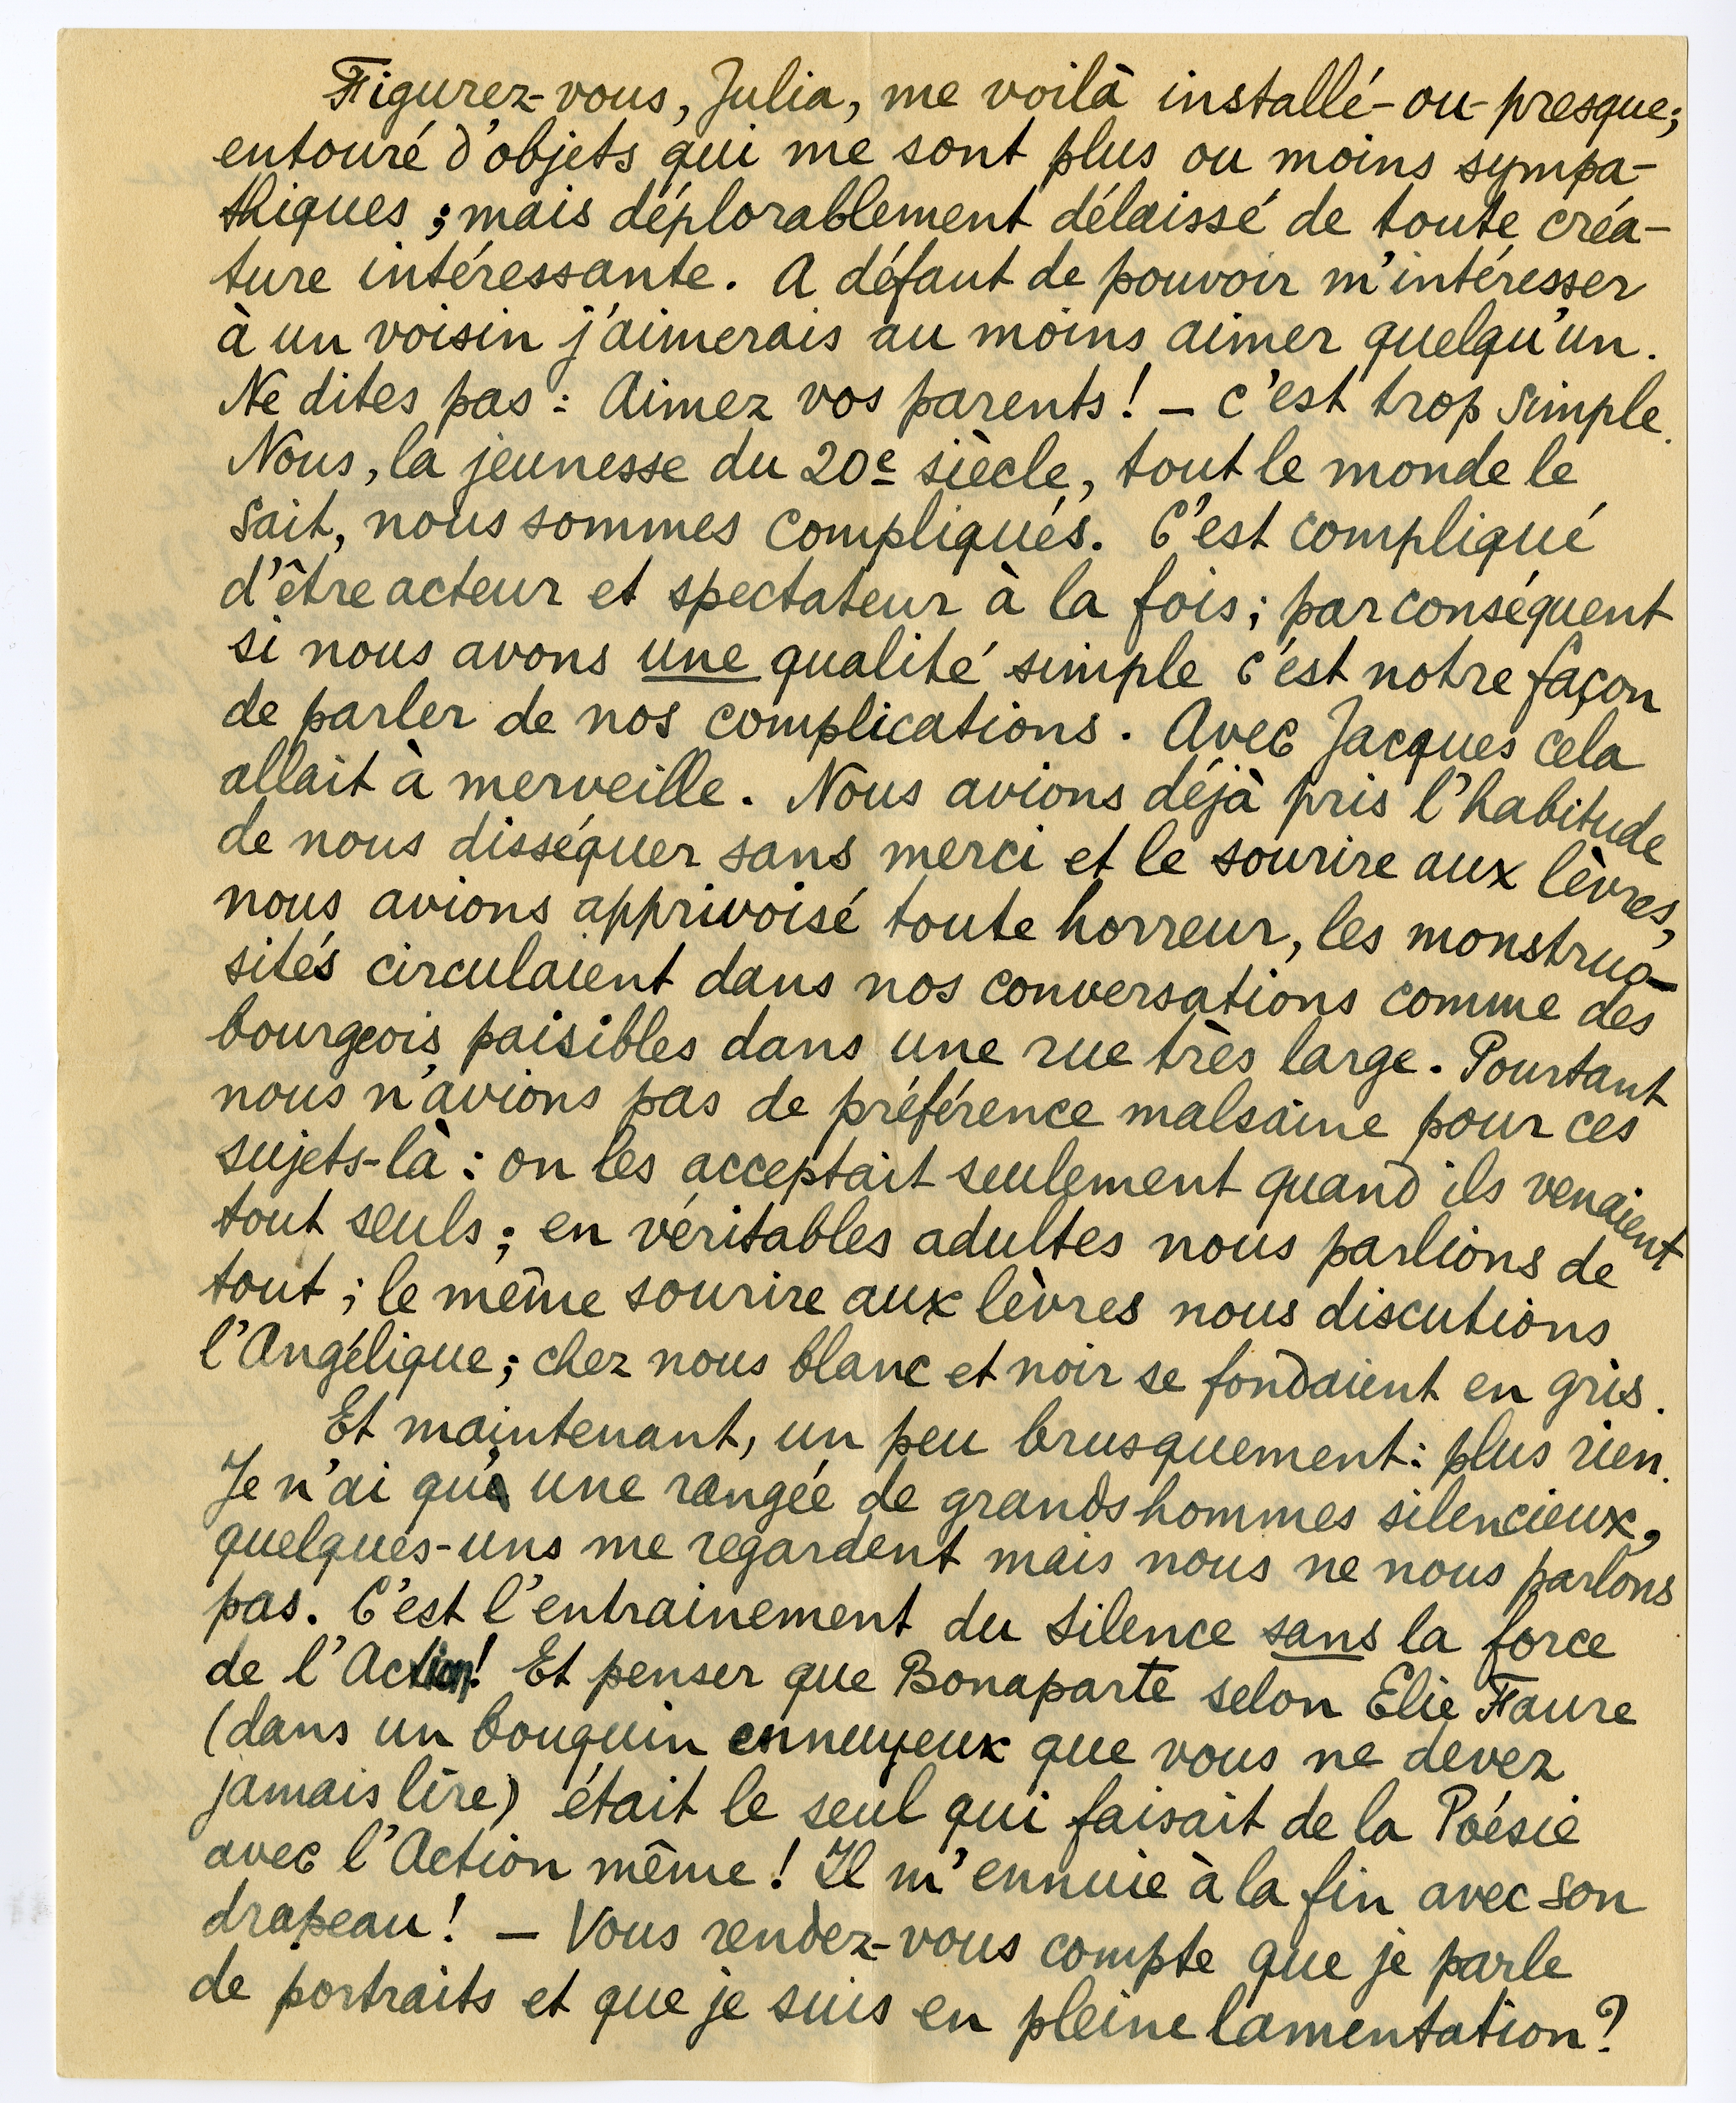 Figurez-vous, Julia, me voilà installé-ou-presque;
entouré d'objets qui me sont plus ou moins sympa-
thiques ; mais déplorablement délaissé de toute créa-
ture intéressante. A défaut de pouvoir m'intéresser
à un voisin j'aimerais au moins aimer quelqu'un.
Ne dites pas : Aimez vos parents ! — c'est trop simple.
Nous, la jeunesse du 20e siècle, tout le monde le
sait, nous sommes compliqués. C'est compliqué
d'être acteur et spectateur à la fois ; par conséquent
si nous avons une qualité simple c'est notre façon
de parler de nos complications. Avec Jacques cela
allait à merveille. Nous avions déjà pris l'habitude
de nous disséquer sans merci et le sourire aux lèvres,
nous avions apprivoisé toute horreur, les monstruo-
sités circulaient dans nos conversations comme des
bourgeois paisibles dans une rue très large. Pourtant
nous n'avions pas de préférence malsaine pour ces
sujets-là : on les acceptait seulement quand ils venaient
tout seuls ; en véritables adultes nous parlions de
tout ; le même sourire aux lèvres nous discutions
l'Angélique ; chez nous blanc et noir se fondaient en gris.
Et maintenant, un peu brusquement : plus rien.
Je n'ai qu'une rangée de grands hommes silencieux,
quelques-uns me regardent mais nous ne nous parlons
pas. C'est l'entrainement du silence sans la force
de l'Action ! Et penser que Bonaparte selon Elie Faure
(dans un bouquin ennuyeux que vous ne devez
jamais lire) était le seul qui faisait de la Poésie
avec l'Action même ! Il m'ennuie à la fin avec son
drapeau ! — Vous rendez-vous compte que je parle
de portraits et que je suis en pleine lamentation ?